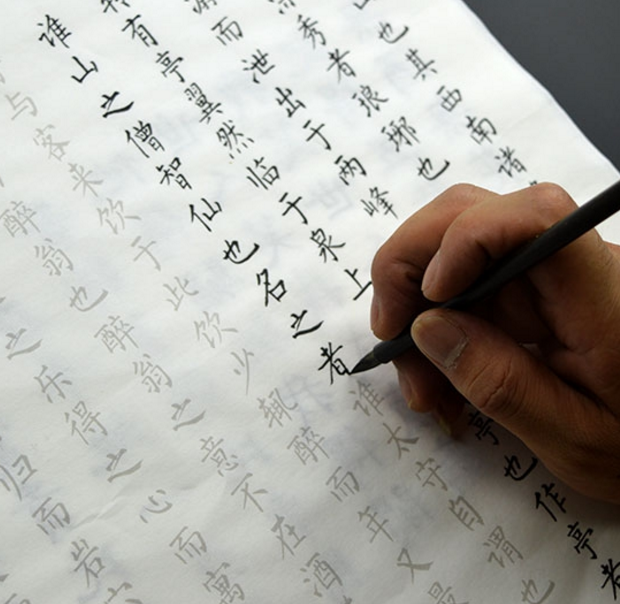 也其西南诸
秀者琅琊也
而泄出于两峰
有亭翼然临于泉上亭也作亭者
谁山之僧智仙也名之者谁太守自谓也
与客来饮于此饮少辄醉而年又最
醉翁也醉翁之意不在酒
之乐得之心而寓
归而岩穴